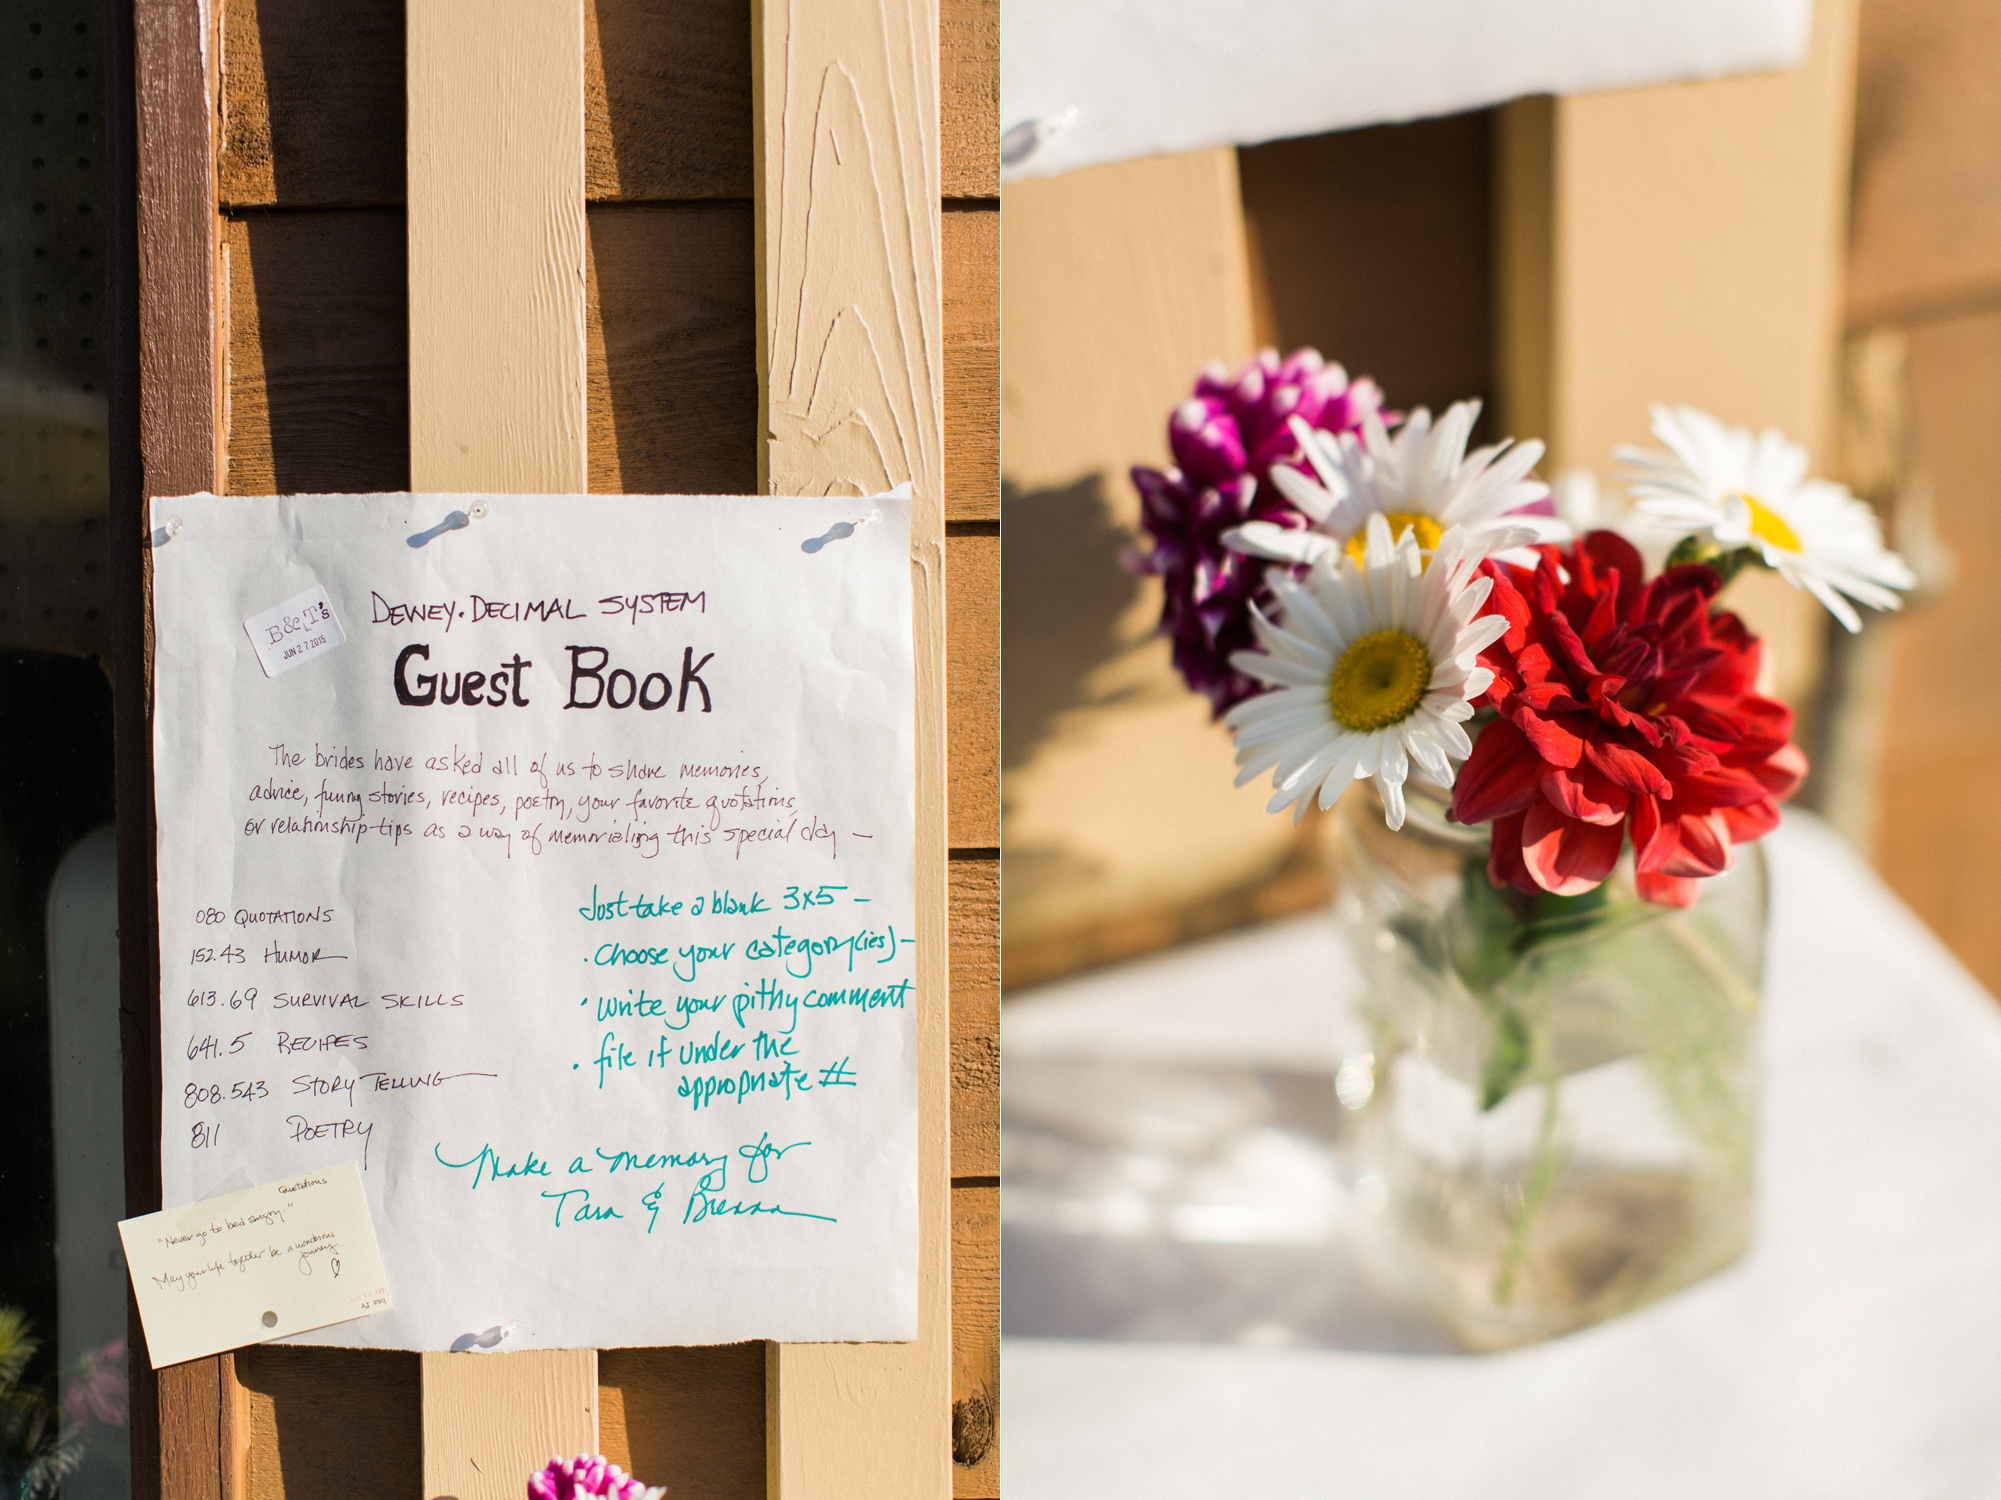 B&T's
JUN 27 2015
DEWEY·DECIMAL SYSTEM
Guest Book
The brides have asked all of us to share memories,
advice, funny stories, recipes, poetry, your favorite quotations,
or relationship tips as a way of memorializing this special day —
080 QUOTATIONS
152.43 HUMOR
613.69 SURVIVAL SKILLS
641.5 RECIPES
808.543 STORY TELLING
811 POETRY
Just take a blank 3x5 —
· Choose your category(ies) —
· write your pithy comment
· file it under the
appropriate #
Make a memory for
Tara & Brenna
Quotations
"Never go to bed angry."
May your life together be a wondrous
journey